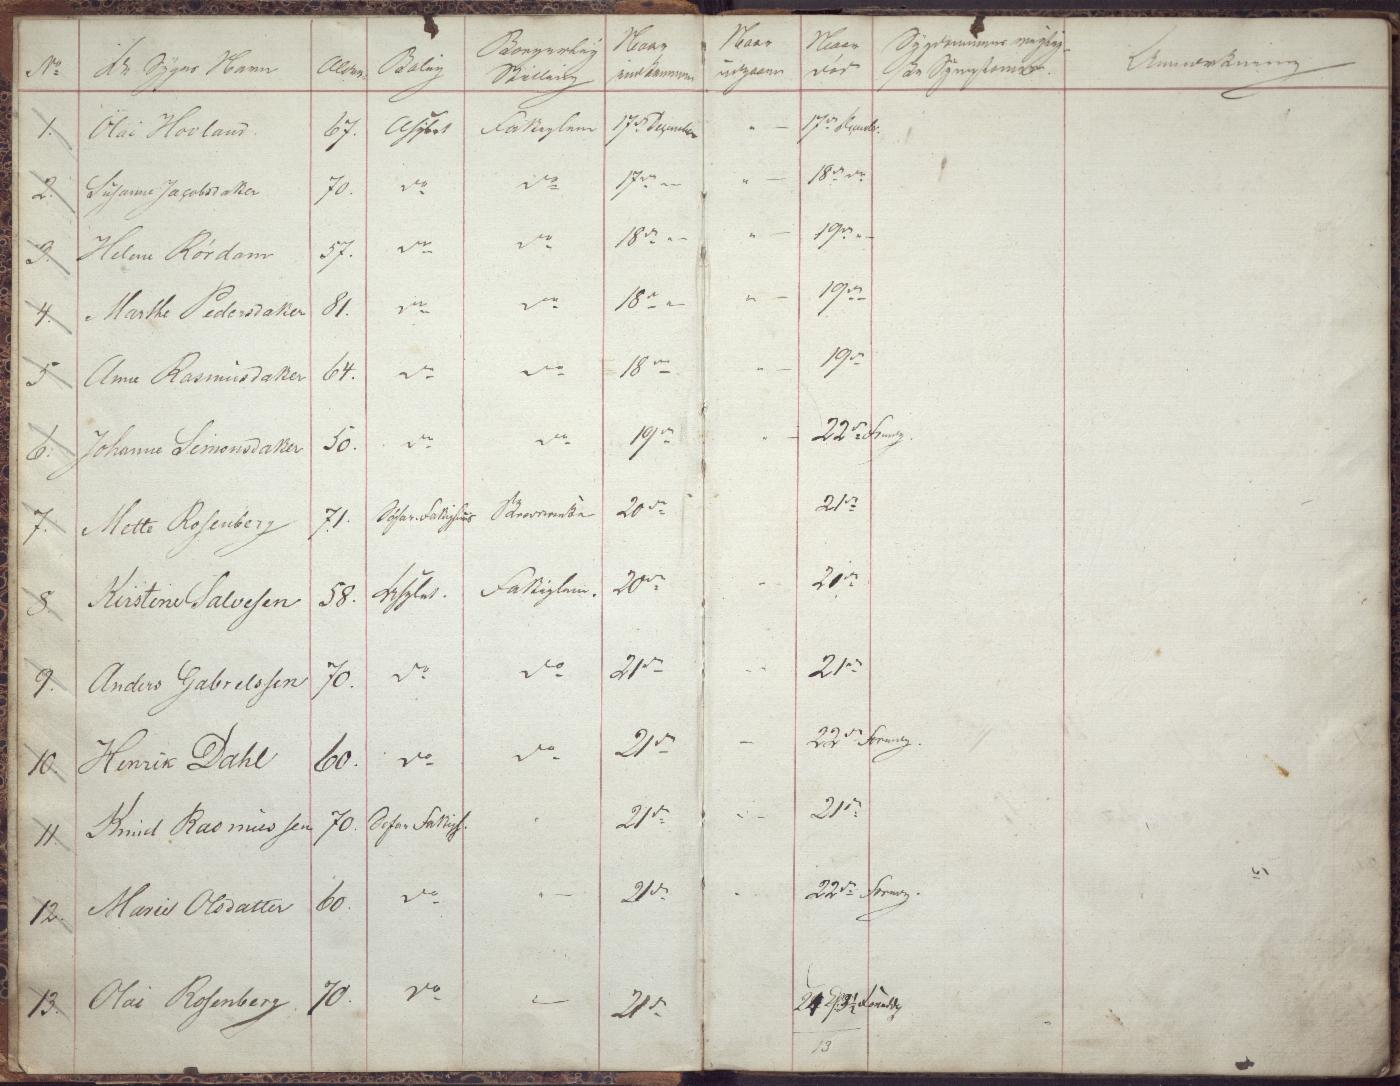 No De Syges Navn Alder Bolig Borgerlig Stilling Naar indkommen Naar udgaaen Naar død Sygdommens vigtigste Symptomer. Anmerkning
1. Olai Hovland. 67. Fattiglem 17de December " — 17de Decembr.
2. Susanne Jacobsdatter 70. do do 17de " — 18de do
3. Helene Rördam 57. do do 18de " — 19de "
4. Marthe Pedersdatter 81. do do 18de " — 19de
5 Anne Rasmusdatter 64. do do 18de " — 19de
6. Johanne Simonsdatter 50. do do 19de " — 22de
7. Mette Rosenberg 71. 20de 21de
8. Kirstine Salvesen 58. Fattiglem. 20de " 21de
9. Anders Gabrielssen 70. do do 21de " 21de
10. Henrik Dahl 60. do do 21de — 22de
11. Knud Rasmussen 70. " 21de " — 21de
12. Marie Olsdatter 60. do " — 21de " 22de
13. Olai Rosenberg 70. do " — 21de
13